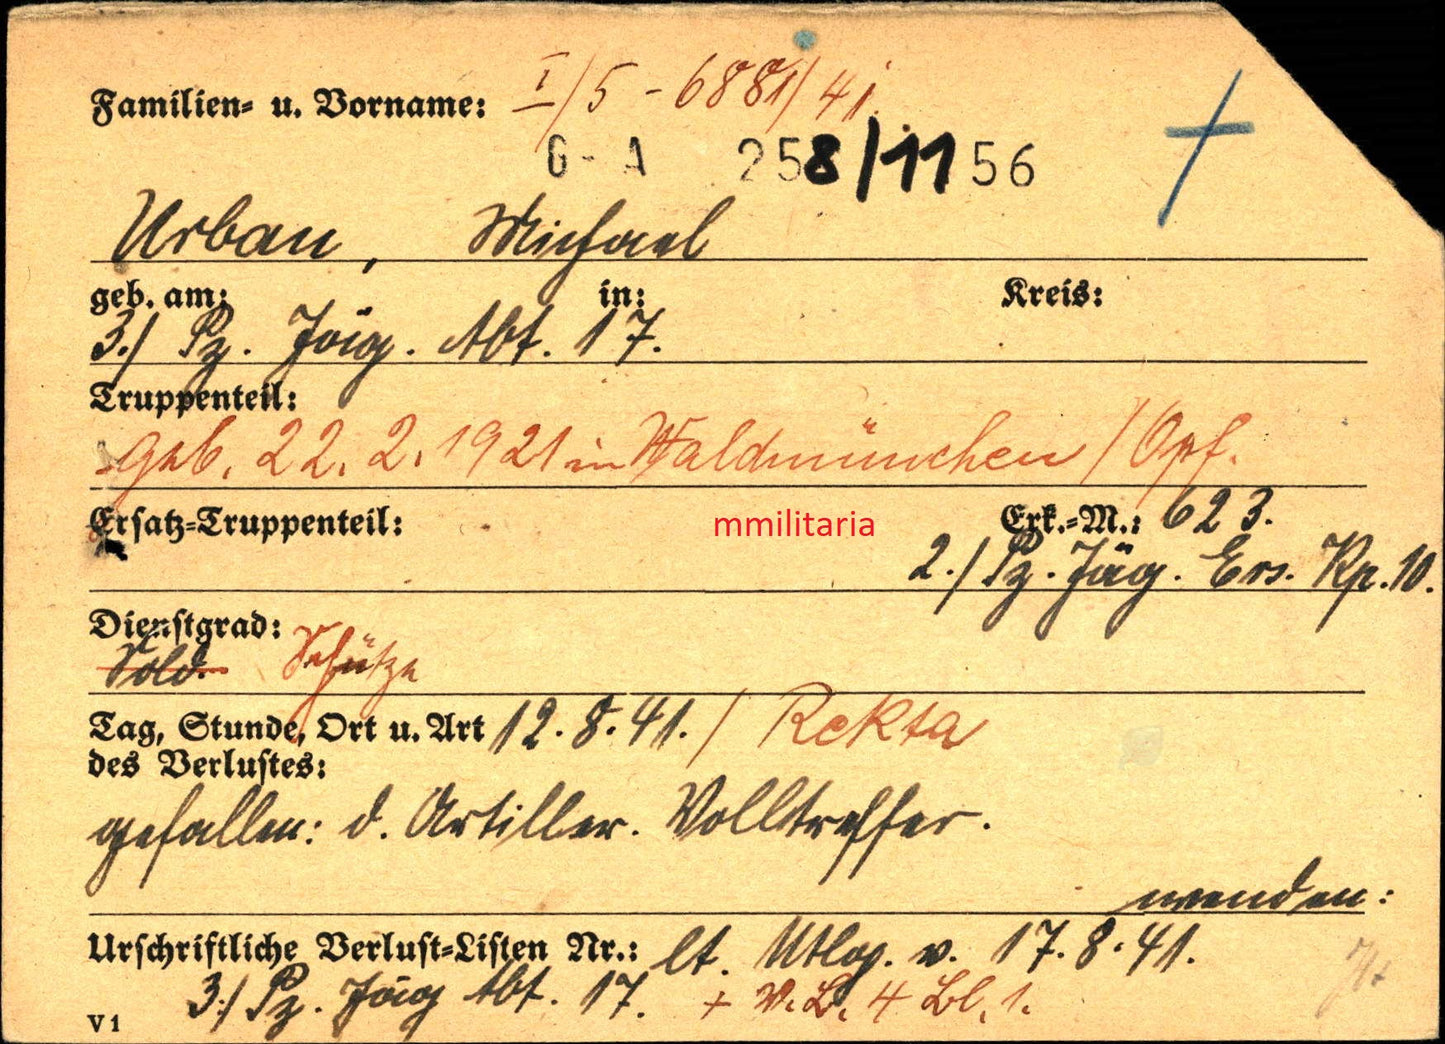 Familien- u. Vorname: I/5 - 6881/41.
G - A 258/11 56
Urban, Michael
geb. am: in: Kreis:
3./ Pz. Jäg. Abt. 17.
Truppenteil:
geb. 22. 2. 1921 in Waldmünchen / Opf.
Ersatz-Truppenteil: mmilitaria Erk.-M.: 623.
2./ Pz. Jäg. Ers. Kp. 10.
Dienstgrad:
Sold. Schütze
Tag, Stunde, Ort u. Art 12. 8. 41. / Rekta
des Verlustes:
gefallen: d. Artiller. Volltreffer.
wenden:
Urschriftliche Verlust-Listen Nr.: lt. Mtlg. v. 17. 8. 41.
3./ Pz. Jäg Abt. 17. + V. L. 4 Bl. 1.
V 1